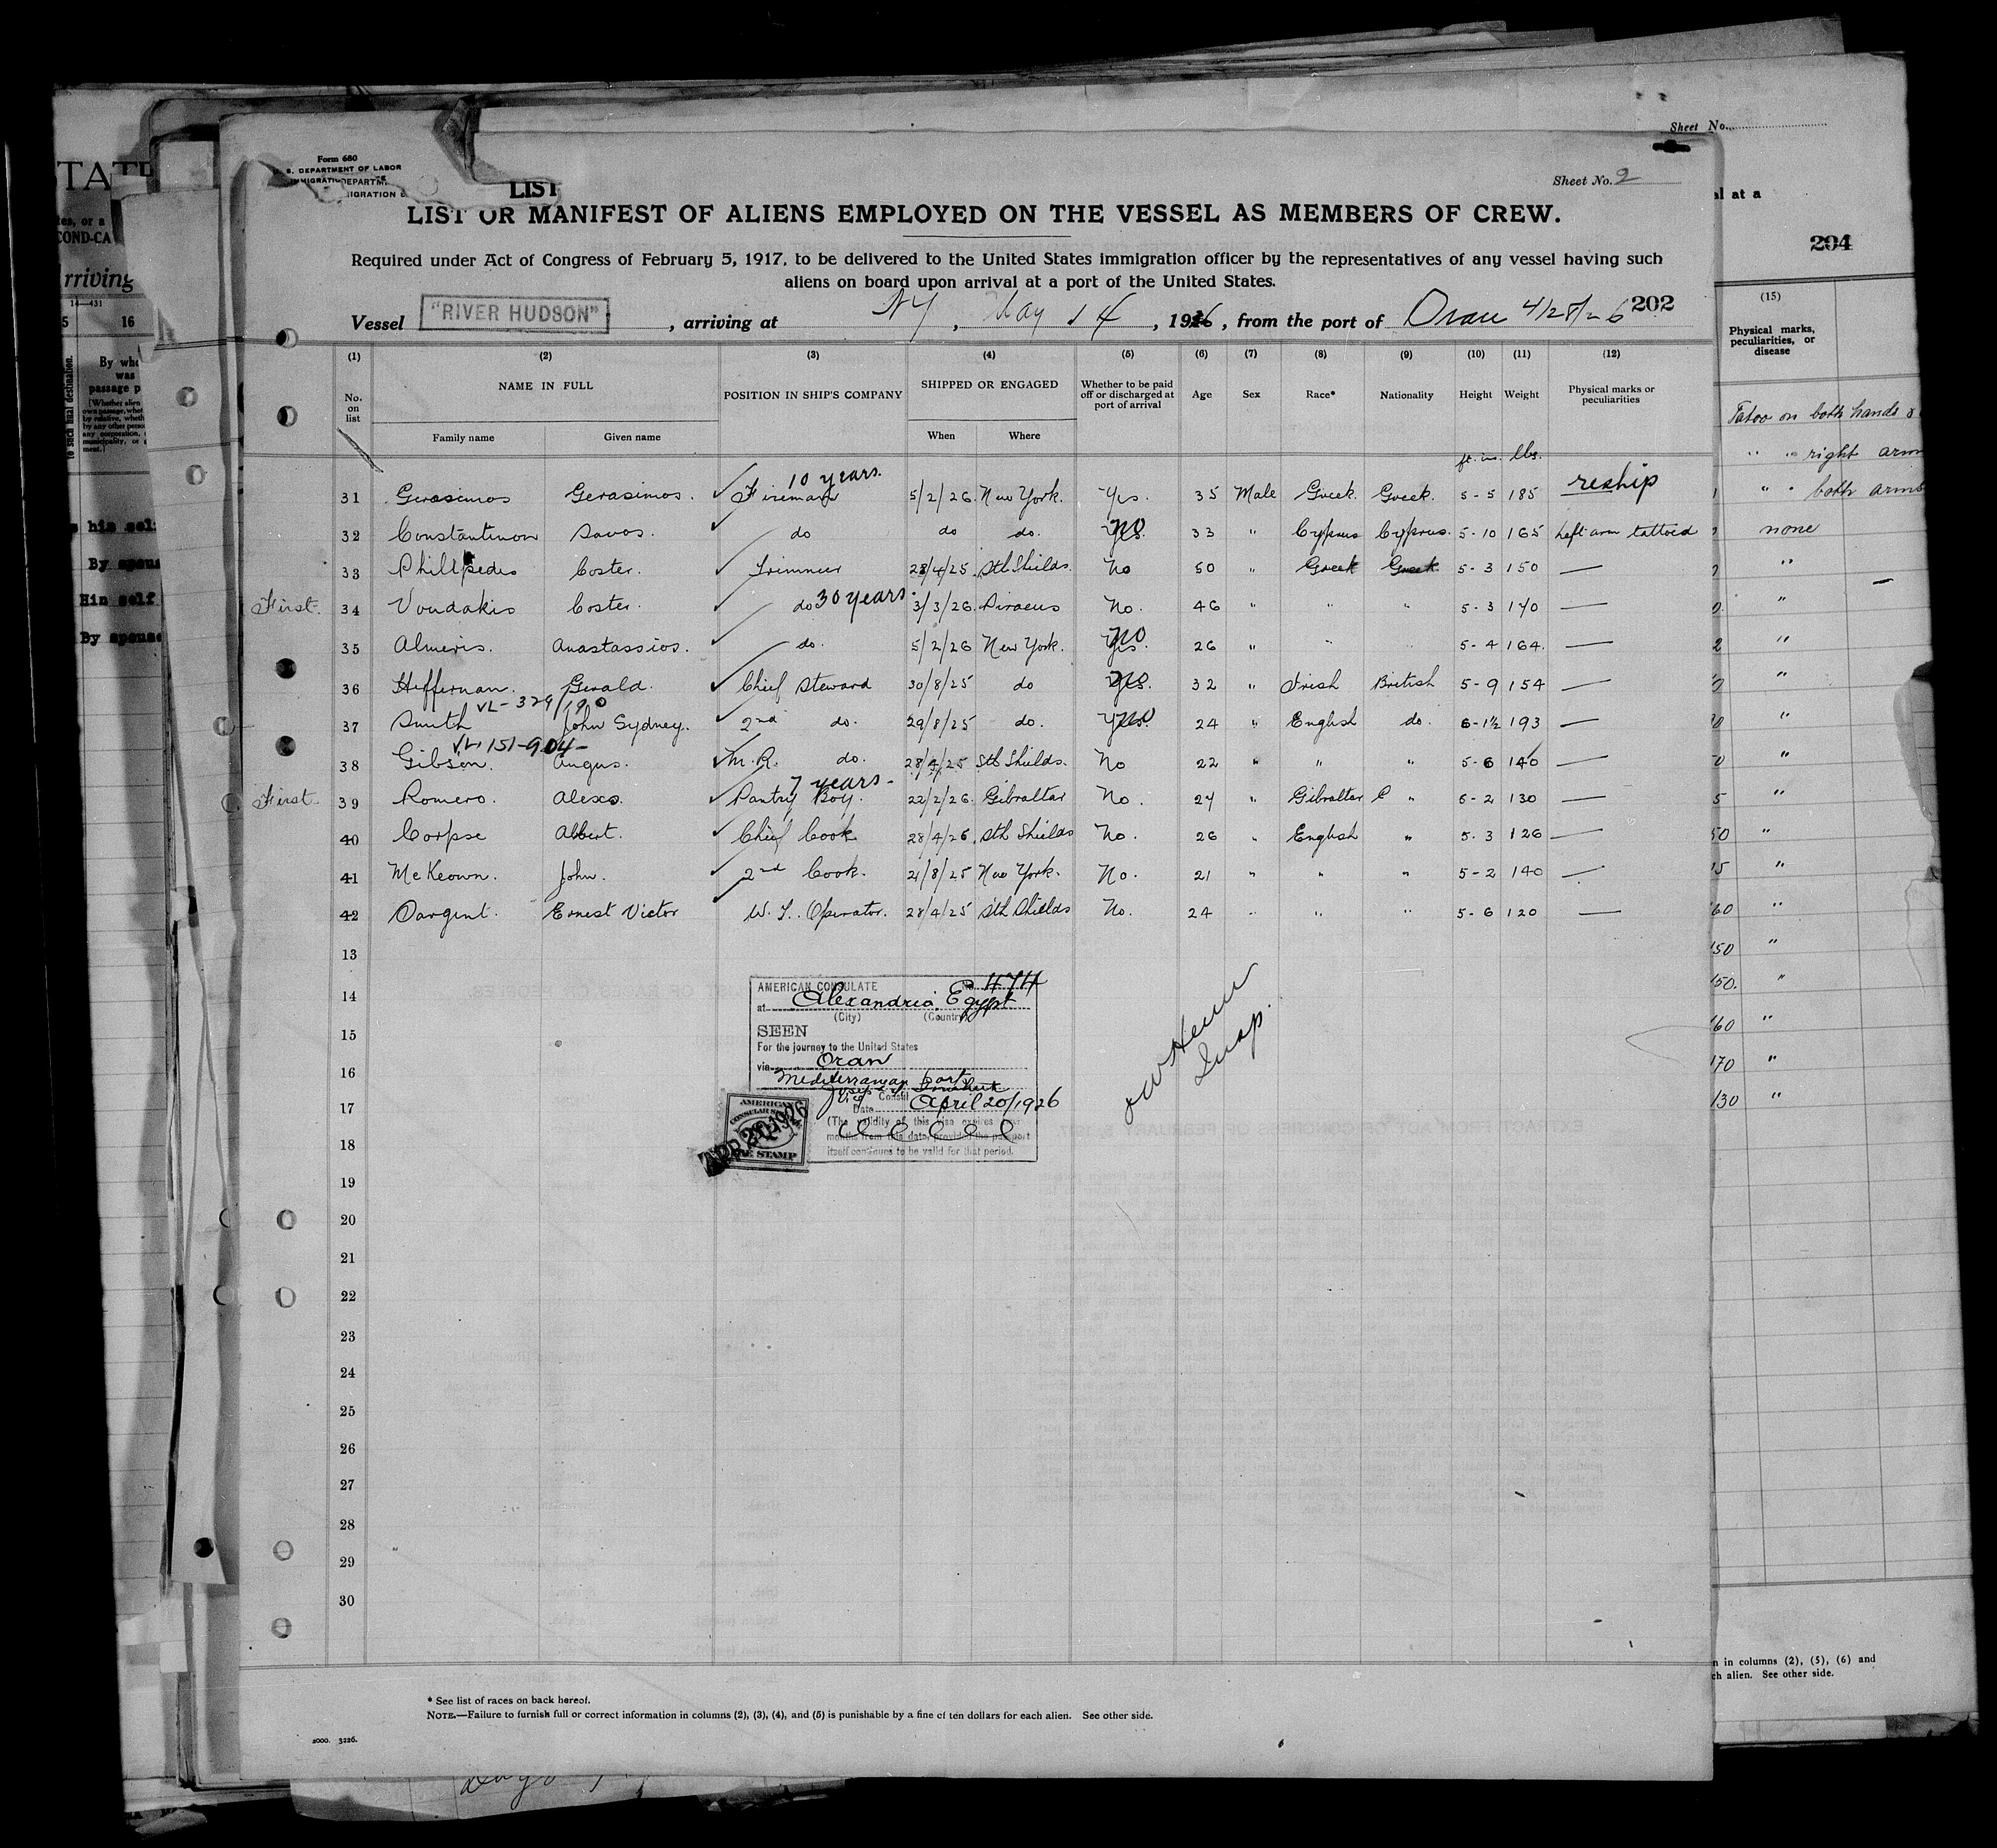 Form 680
S. DEPARTMENT OF LABOR
Sheet No.
Sheet No. 2
LIST
LIST OR MANIFEST OF ALIENS EMPLOYED ON THE VESSEL AS MEMBERS OF CREW.
Required under Act of Congress of February 5, 1917, to be delivered to the United States immigration officer by the representatives of any vessel having such
aliens on board upon arrival at a port of the United States.
202
Vessel "RIVER HUDSON" , arriving at NY , May 14 , 1926 , from the port of Oran 4/28/26
(1) (2) (3) (4) (5) (6) (7) (8) (9) (10) (11) (12)
No. on list NAME IN FULL POSITION IN SHIP'S COMPANY SHIPPED OR ENGAGED Whether to be paid off or discharged at port of arrival Age Sex Race* Nationality Height Weight Physical marks or peculiarities
Family name Given name When Where
ft. in. lbs.
10 years. reship
31 Gerasimos Gerasimos. Fireman 5/2/26 New York. Yes. 35 Male Greek. Greek. 5-5 185
32 Constantinon Savos. do do do. Yes. no 33 " Cyprus Cyprus. 5-10 165 Left arm tattoed
33 Phillpedes Coster. Trimmer 28/4/25 Sth Shields. No 50 " Greek Greek 5-3 150 —
First. 34 Voudakis Coster. do 30 years. 3/3/26 Piraeus No. 46 " " " 5-3 170 —
35 Almeris. Anastassios. do. 5/2/26 New York. Yes. no 26 " " 5-4 164. —
36 Heffernan. Gerald. Chief Steward 30/8/25 do Yes. 32 " Irish British 5-9 154 —
VL-329/190
37 Smith John Sydney. 2nd do. 29/8/25 do. Yes. no 24 " English do. 6-1½ 193 —
VL 151-904-
38 Gibson. Angus. M.R. do. 28/4/25 Sth Shields. No 22 " " " 5-6 146 —
7 years-
First. 39 Romero. Alexo. Pantry Boy. 22/2/26. Gibraltar No. 24 " Gibraltar " 5-2 130 —
40 Corpse Albert. Chief Cook. 28/4/26. Sth Shields No. 26 " English " 5-3 126 —
41 McKeown. John. 2nd Cook. 21/8/25 New York. No. 21 " " " 5-2 140 —
42 Sargent. Ernest Victor W.T. Operator. 28/4/25 Sth Shields No. 24 " " " 5-6 120 —
13
14
15
16
17
18
19
20
21
22
23
24
25
26
27
28
29
30
AMERICAN CONSULATE No. 474
at Alexandria, Egypt
(City) (Country)
SEEN
For the journey to the United States
via Oran
Mediterranean port
Vice Consul
Date April 20/1926
(The validity of this visa expires
months from this date, provided the passport
itself continues to be valid for that period.
AMERICAN
CONSULAR SERVICE
APR 20 1926
FEE STAMP
Insp.
* See list of races on back hereof.
NOTE.—Failure to furnish full or correct information in columns (2), (3), (4), and (5) is punishable by a fine of ten dollars for each alien. See other side.
2000. 3226.
al at a
204
(15)
Physical marks, peculiarities, or disease
Tatoo on both hands &
" " right arm
" " both arms
none
n in columns (2), (5), (6) and
ch alien. See other side.
TATE
tes, or a
COND-CA
rriving
14—431
5 16
By who
was
passage p
his self
By spouse
Him self
By spouse